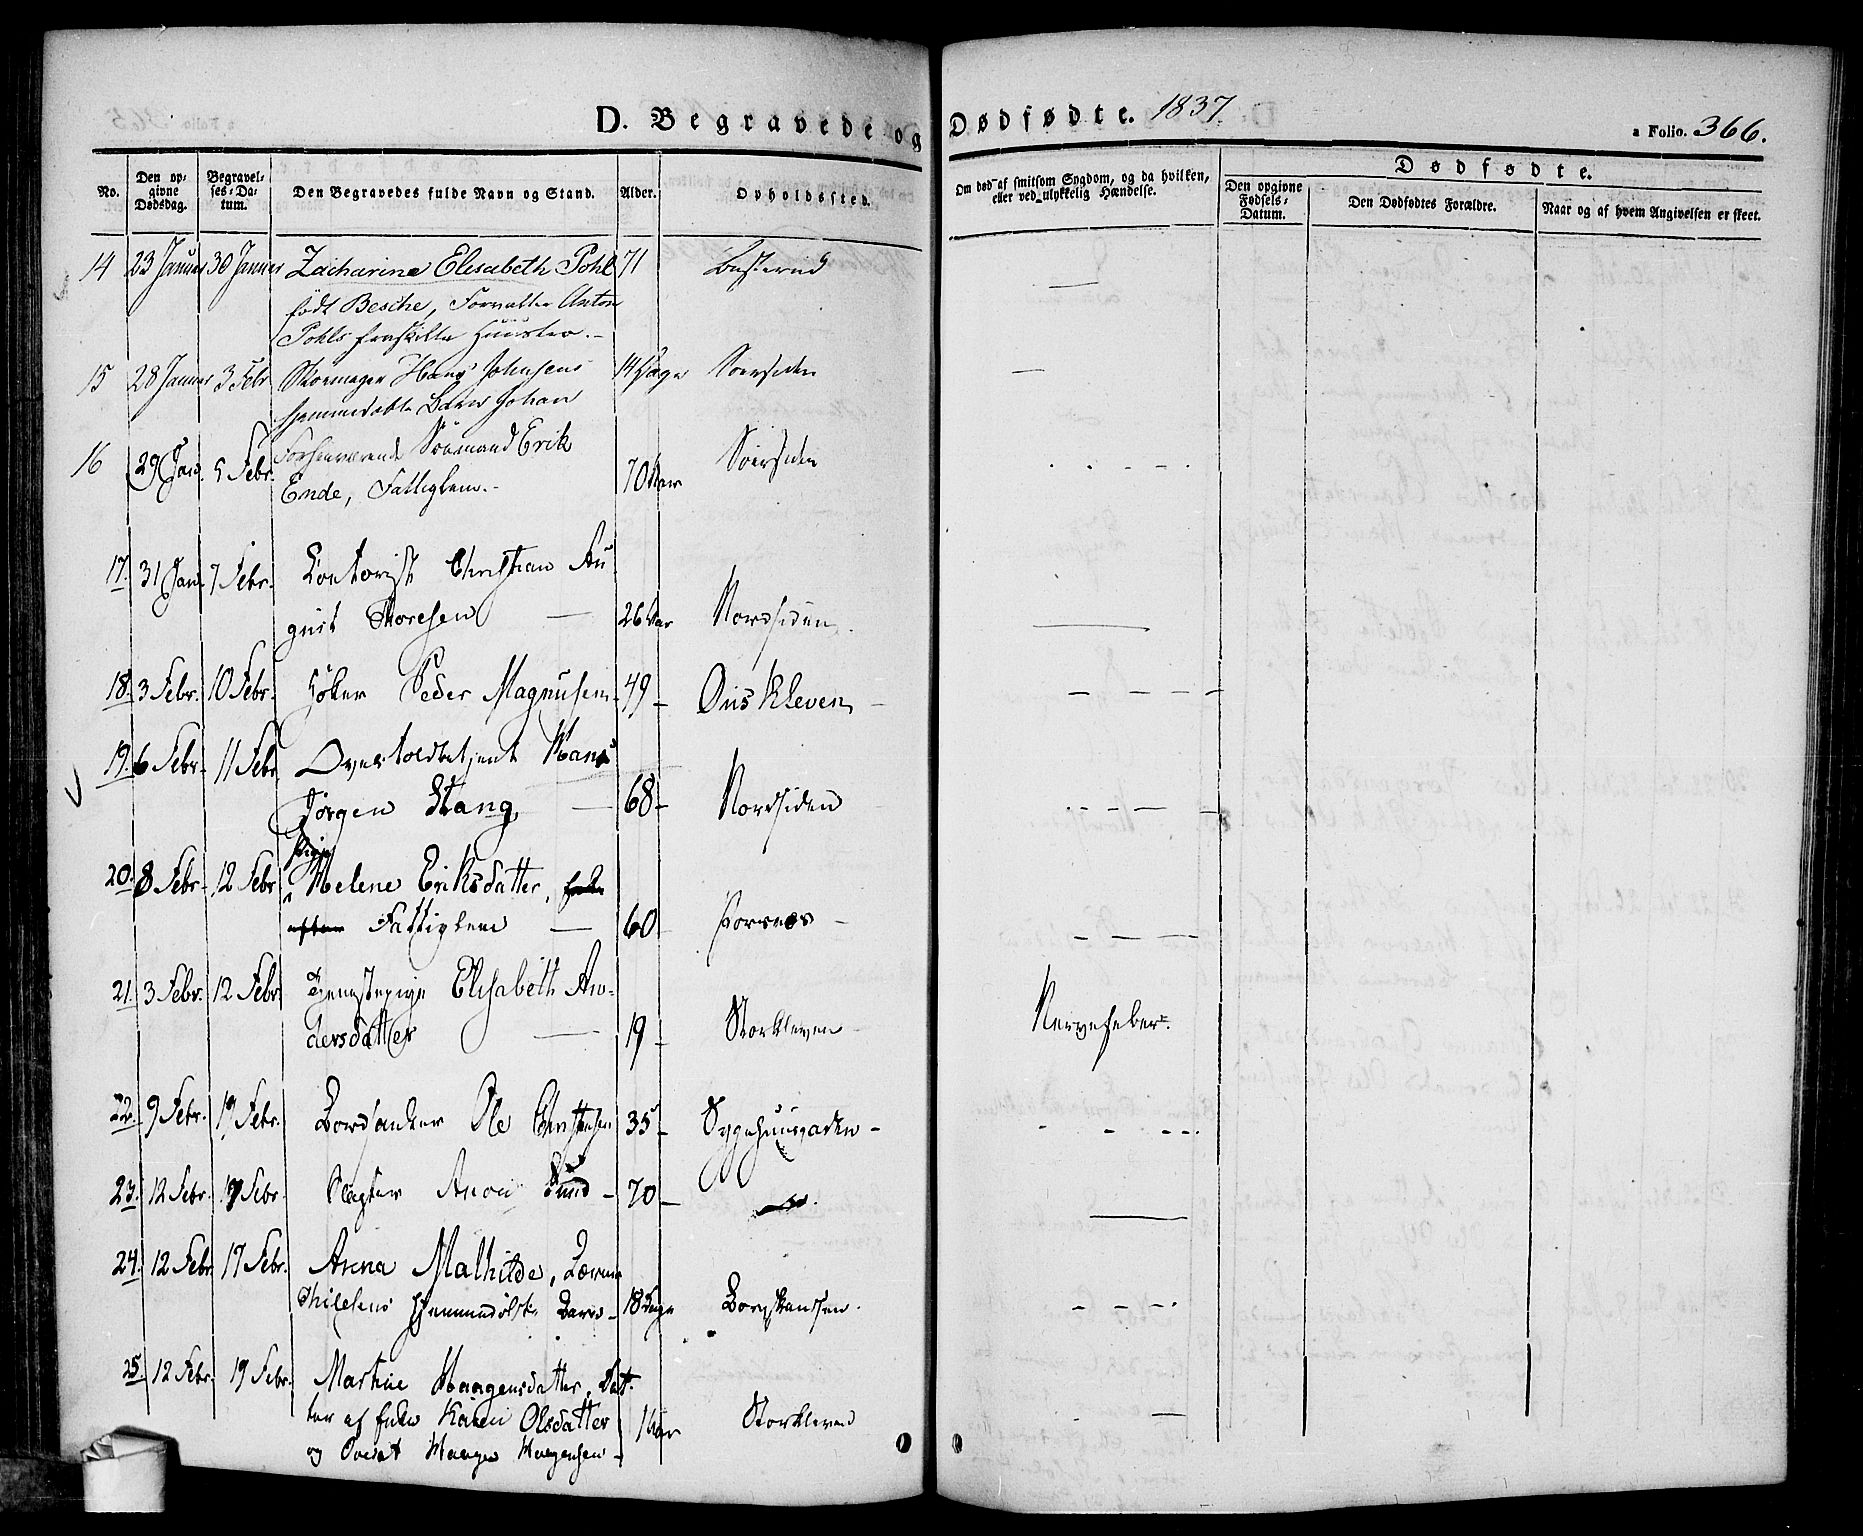 D. Begravede og Dødfødte. 1837.
a Folio. 366.
No. Den opgivne Dødsdag. Begravelses-Datum. Den Begravedes fulde Navn og Stand. Alder. Opholdssted. Om død af smitsom Sygdom, og da hvilken, eller ved ulykkelig Hændelse.
Dødfødte.
Den opgivne Fødsels-Datum. Den Dødfødtes Forældre. Naar og af hvem Angivelsen er skeet.
14 23 Januar 30 Januar Zacharine Elisabeth Pohl 71
født Besche, Forvalter Anton
Pohls fraskilte Huustro. -
15 28 Januar 3 Febr Skomager Hans Johnsens 14 Dage Sørsiden
hjemmedøbte Barn Johan
16 29 Jan. 5 Febr. Forhenværende Sømand Erik 70 Aar Sørsiden
Ende, Fattiglem. -
17. 31 Jan. 7 Febr. Contorist Christian Au
gust Thoresen 26 Aar Nordsiden.
18. 3 Febr. 10 Febr. Høker Peder Magnusen 49 - Øiskleven -
19. 6 Febr. 11 Febr. Overtoldbetjent Hans
Jørgen Stang, 68 - Nordsiden -
Pige
20. 8 Febr. 12 Febr Helene Eriksdatter,
Fattiglem 60 -
21. 3 Febr. 12 Febr Tjenestepige Elisabeth An-
dersdatter 19 - Storkleven - Nervefeber.
22. 9 Febr. 19 Febr. Ole Christensen 35 - Sygehuusgaden -
23. 12 Febr. 19 Febr. Slagter Aron Lund - 70 -
24. 12 Febr. 17 Febr. Anna Mathilde,
hjemmedøbte Barn - 18 Dage Bergskandsen.
25. 12 Febr. 19 Febr. Martine Haagensdatter, Dat-
ter af Enke Karen Olsdatter 1 Aar Storkleven
og Haagen Haagensen -